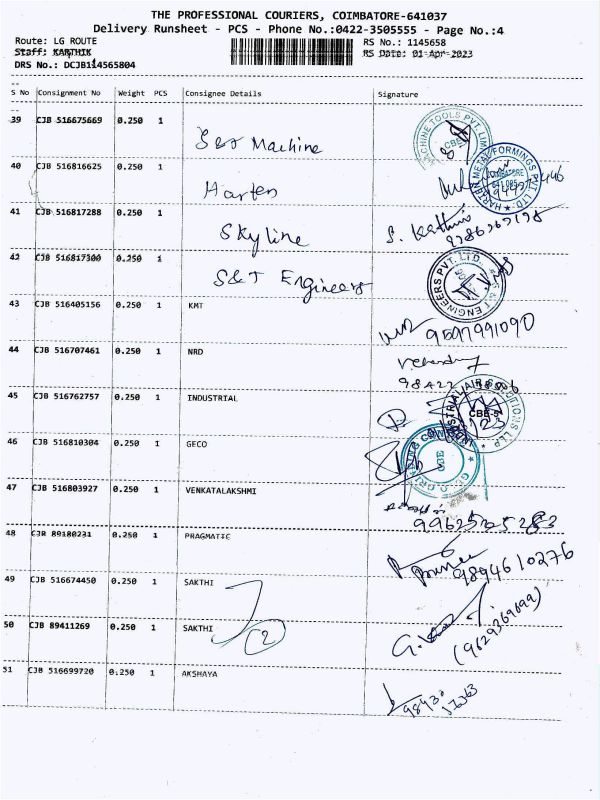 THE PROFESSIONAL COURIERS, COIMBATORE-641037
Delivery Runsheet - PCS - Phone No.:0422-3505555 - Page No.:4
Route: LG ROUTE RS No.: 1145658
Staff: KARTHIK RS Date: 01-Apr-2023
DRS No.: DCJB114565804
S No Consignment No Weight PCS Consignee Details Signature
39 CJB 516675669 0.250 1 S&T Machine
MACHINE TOOLS PVT. LIM
CBE
40 CJB 516816625 0.250 1 Harten
41 CJB 516817288 0.250 1 Skyline S. Kathir
42 CJB 516817300 0.250 1 S&T Engineers
S & T ENGINEERS PVT. LTD.
43 CJB 516405156 0.250 1 KMT 9597991090
44 CJB 516707461 0.250 1 NRD
45 CJB 516762757 0.250 1 INDUSTRIAL
CBE-5
46 CJB 516810304 0.250 1 GECO
47 CJB 516803927 0.250 1 VENKATALAKSHMI
48 CJB 89180231 0.250 1 PRAGMATIC 9894610276
49 CJB 516674450 0.250 1 SAKTHI
50 CJB 89411269 0.250 1 SAKTHI (2) (9629369699)
51 CJB 516699720 0.250 1 AKSHAYA